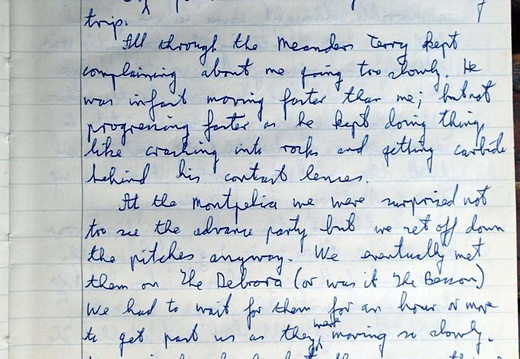 trip.
All through the Meanders Terry kept
complaining about me going too slowly. He
was infact moving faster than me; but not
progressing faster as he kept doing things
like crashing into rocks and getting carbide
behind his contact lenses.
At the Montpelia we were surprised not
to see the advance party but we set off down
the pitches anyway. We eventually met
them on The Delvora (or was it The Basson)
We had to wait for them for an hour or more
to get past us as they were moving so slowly.